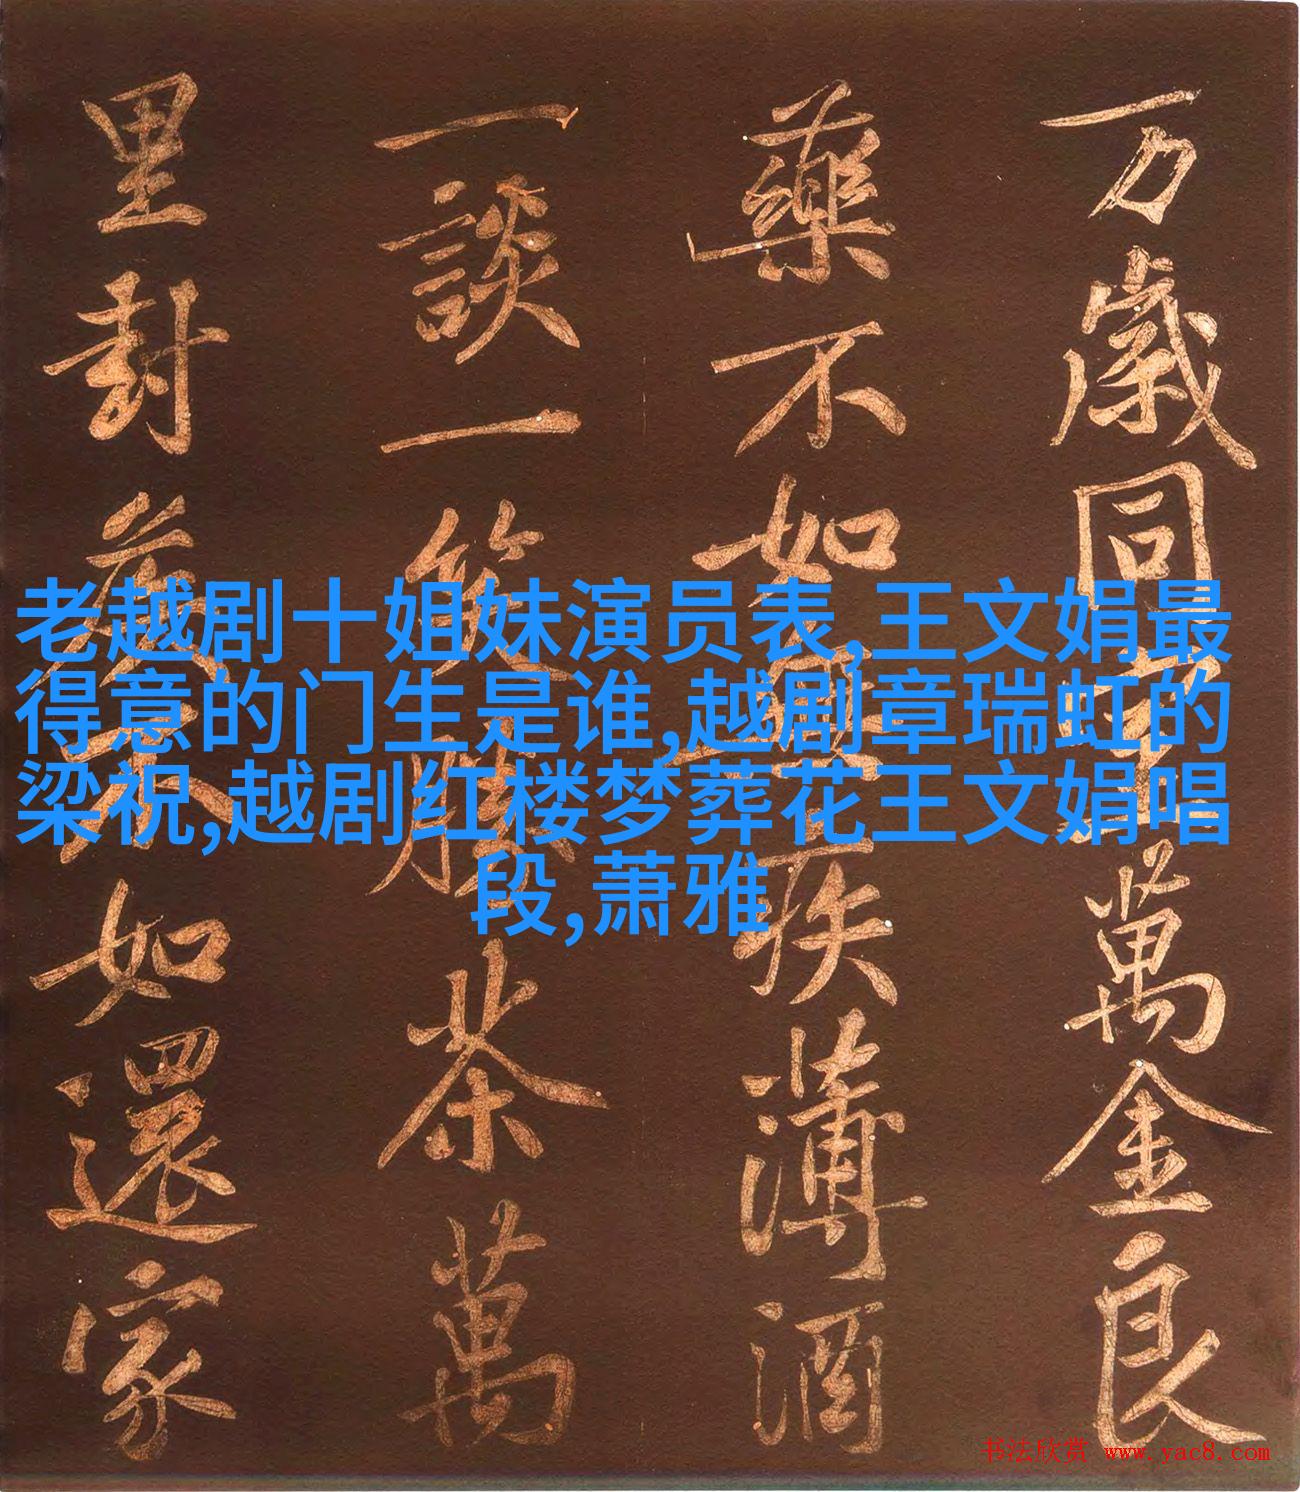 万歲同萬金良
藥不如無疾薄酒
一談一笑勝茶萬
里封侯不如還家
老越剧十姐妹演员表,王文娟最
得意的门生是谁,越剧章瑞虹的
梁祝,越剧红楼梦葬花王文娟唱
段,萧雅
书法欣赏 www.yac8.com